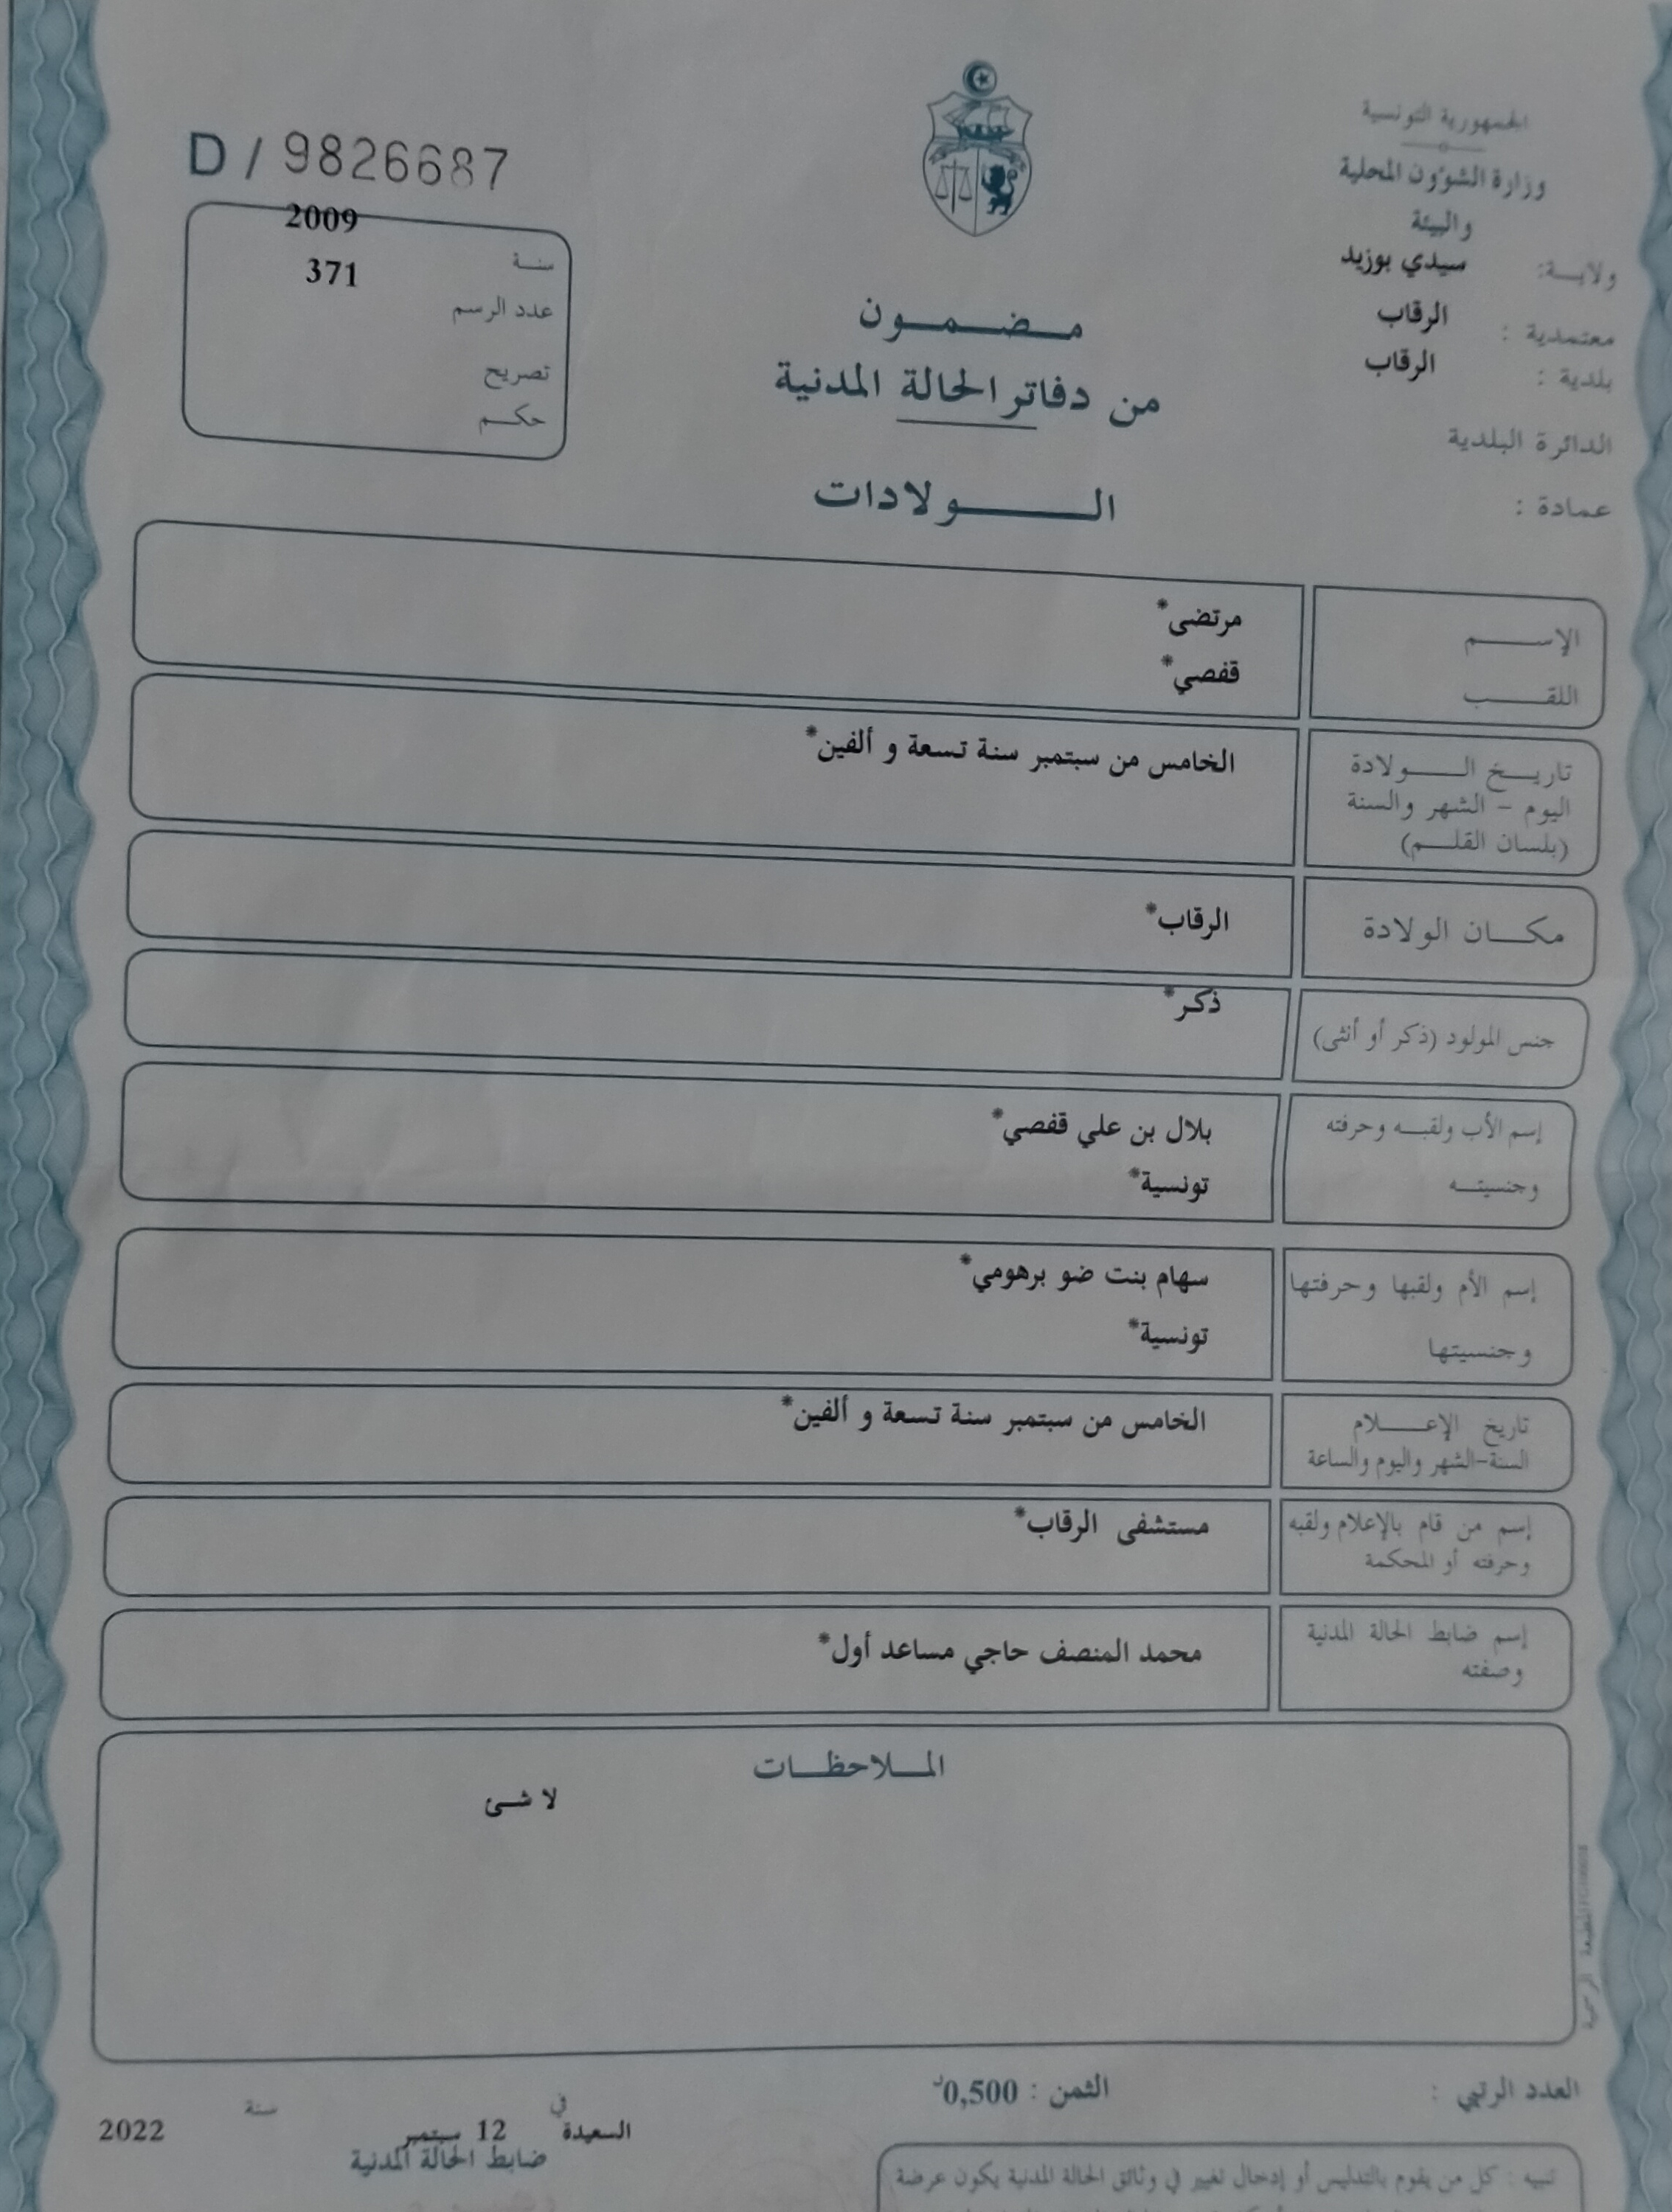 الجمهورية التونسية
وزارة الشؤون المحلية
والبيئة
ولايـــة: سيدي بوزيد
معتمدية : الرقاب
بلدية : الرقاب
الدائرة البلدية
عمادة :
D / 9826687
2009
سنـة
371
عدد الرسم
تصريح
حكـــم
مـــضـــمـــون
من دفاتر الحالة المدنية
الـــــــولادات
الإســــــم مرتضى*
اللقــــــب قفصي*
تاريـــخ الـــــولادة
اليوم – الشهر والسنة
(بلسان القلـــم)
الخامس من سبتمبر سنة تسعة و ألفين*
مكـــان الولادة الرقاب*
جنس المولود (ذكر أو أنثى) ذكر*
إسم الأب ولقبــه وحرفته بلال بن علي قفصي*
وجنسيتــه تونسية*
إسم الأم ولقبها وحرفتها سهام بنت ضو برهومي*
وجنسيتها تونسية*
تاريخ الإعـــــلام
السنة-الشهر واليوم والساعة
الخامس من سبتمبر سنة تسعة و ألفين*
إسم من قام بالإعلام ولقبه
وحرفته أو المحكمة
مستشفى الرقاب*
إسم ضابط الحالة المدنية
وصفته
محمد المنصف حاجي مساعد أول*
الملـــاحظـــات
لا شــئ
المطبعة الرسمية
العدد الرتبي :
الثمن : 0,500د
السعيدة في 12 سبتمبر سنة 2022
ضابط الحالة المدنية
تنبيه : كل من يقوم بالتدليس أو إدخال تغيير في وثائق الحالة المدنية يكون عرضة